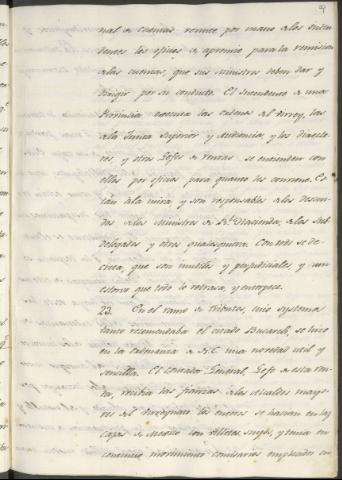 9
nal de cuentas remite por mano de los Inten-
dentes los oficios de apremio para la remision
de las cuentas, que sus ministros deben dar y
dirigir por su conducto. El Intendente de una
Provincia executa las ordenes del Virrey, las
de la Junta Superior y Audiencia, y los Directo-
res y otros Gefes de rentas se entienden con
ellos por oficios para quanto les conviene. Es-
tan a la mira y son responsables de los descui-
dos de los Ministros de Rl. Hacienda, de los Sub-
delegados y otros qualesquiera. Con todo se de-
creta, que son inutiles y perjudiciales, y un
estorvo que todo lo retrasa, y entorpece.
23. En el ramo de tributos, cuio systema
tanto recomendaba el citado Bucareli, se hizo
en la ordenanza de una novedad util y
sencilla. El Contador General, Gefe de esta ren-
ta, recibia las fianzas de los alcaldes mayo-
res del Virreynato los enteros se hacian en las
Cajas de Mexico con villetes suyos, y tenia en
continuo movimiento comisarios empleados en